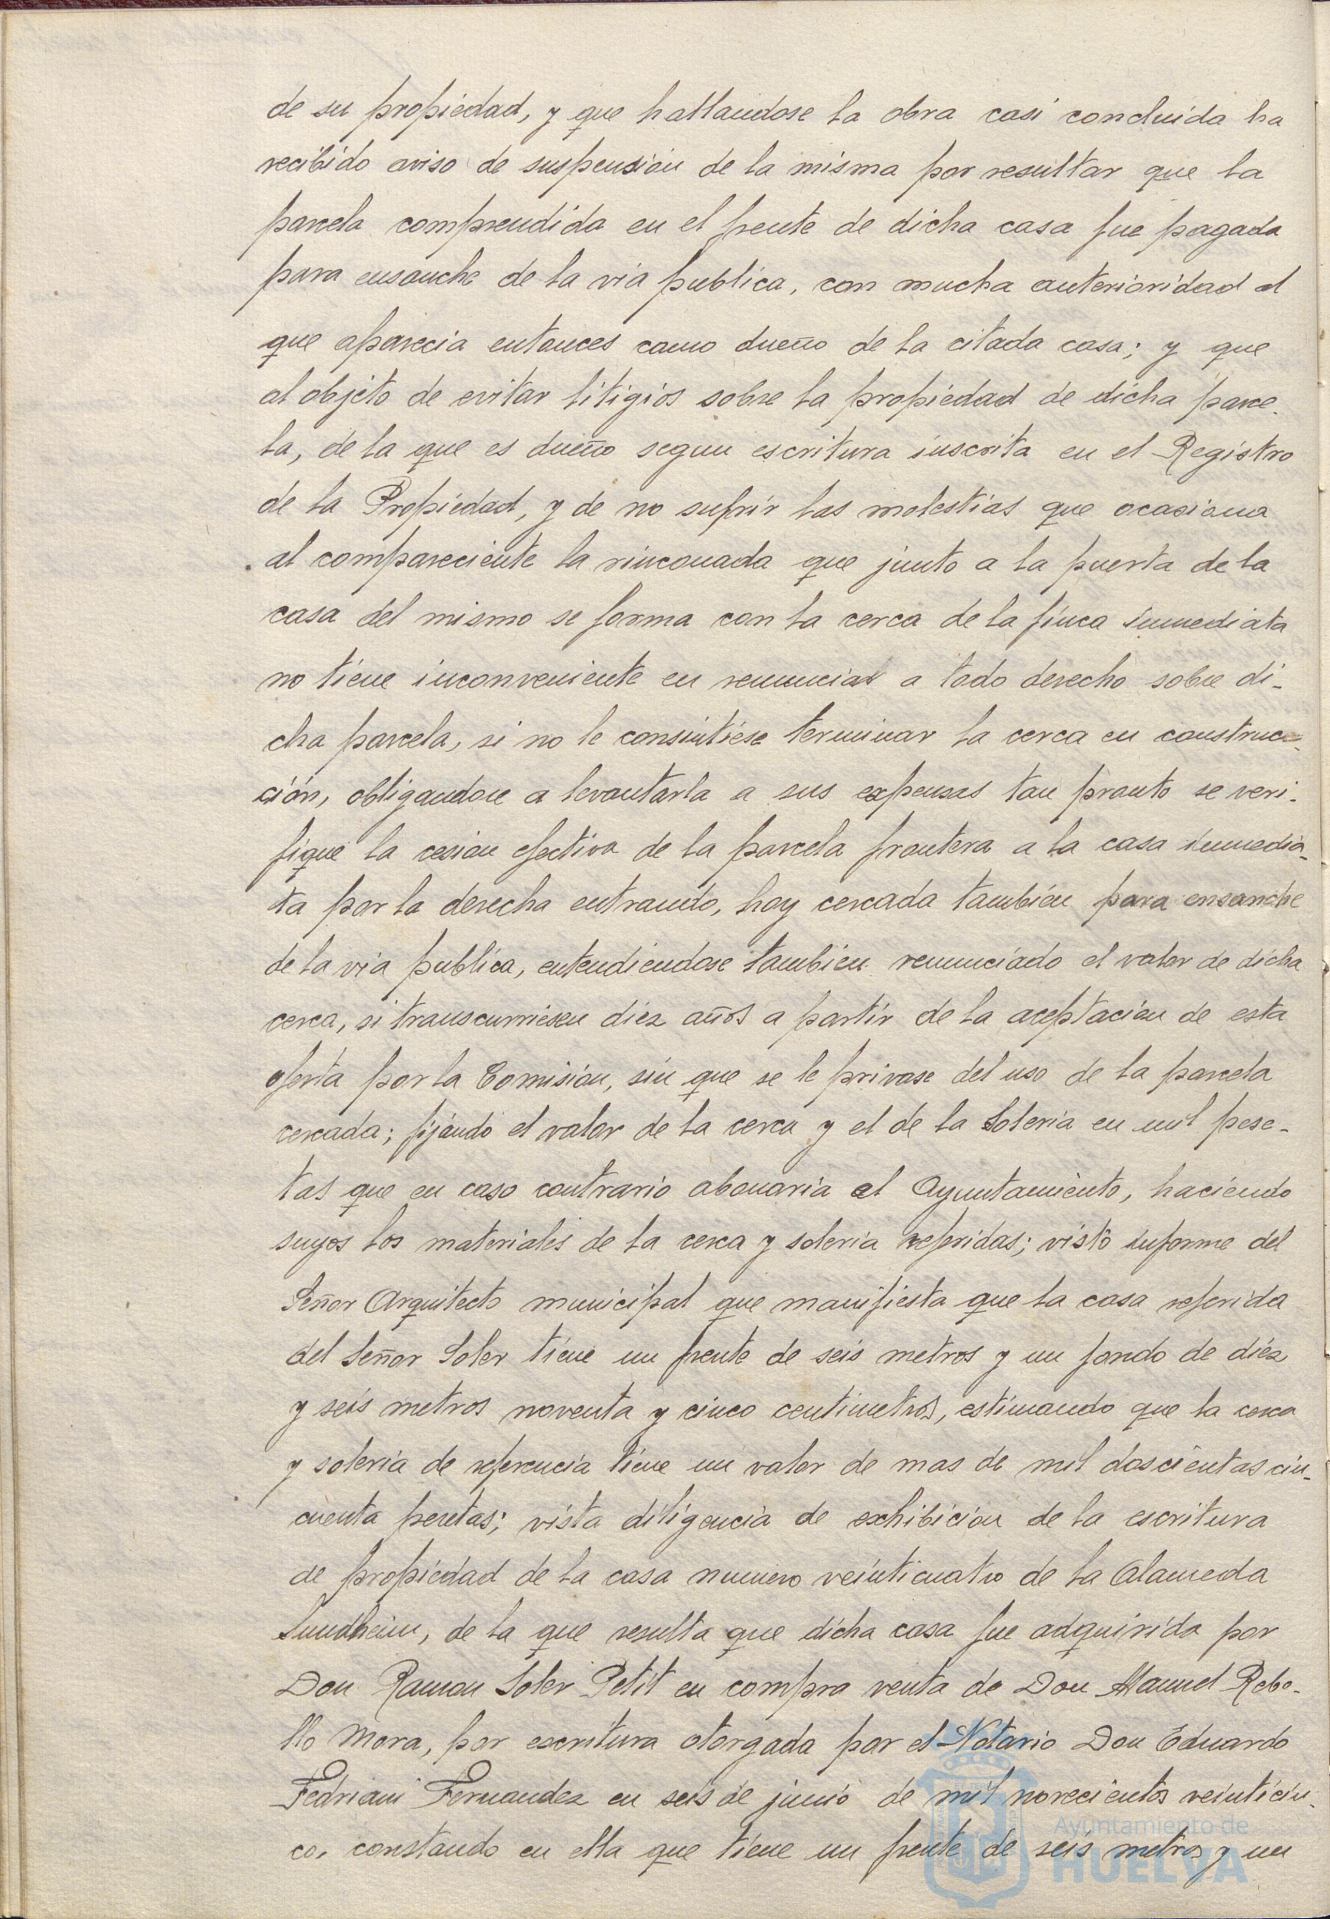 de su propiedad, y que hallandose la obra casi concluida ha
recibido aviso de suspensión de la misma por resultar que la
parcela comprendida en el frente de dicha casa fue pagada
para ensanche de la via publica, con mucha anterioridad al
que aparecia entonces como dueño de la citada casa; y que
al objeto de evitar litigios sobre la propiedad de dicha parce-
la, de la que es dueño segun escritura inscrita en el Registro
de la Propiedad, y de no sufrir las molestias que ocasiona
al compareciente la rinconada que junto a la puerta de la
casa del mismo se forma con la cerca de la finca inmediata
no tiene inconveniente en renunciar a todo derecho sobre di-
cha parcela, si no le consintiése terminar la cerca en construc-
ción, obligandose a levantarla a sus expensas tan pronto se veri-
fique la cesion efectiva de la parcela frontera a la casa inmedia-
ta por la derecha entrando, hoy cercada también para ensanche
de la via publica, entendiendose tambien renunciado el valor de dicha
cerca, si transcurriesen diez años a partir de la aceptación de esta
oferta por la Comisión, sin que se le privase del uso de la parcela
cercada; fijando el valor de la cerca y el de la Soleria en mil pese-
tas que en caso contrario abonaria el Ayuntamiento, haciendo
suyos los materiales de la cerca y soleria referidas; visto informe del
Señor Arquitecto municipal que manifiesta que la casa referida
del Señor Soler tiene un frente de seis metros y un fondo de diez
y seis metros noventa y cinco centimetros, estimando que la cerca
y soleria de referencia tiene un valor de mas de mil doscientas cin-
cuenta pesetas; vista diligencia de exhibicion de la escritura
de propiedad de la casa numero veinticuatro de la Alameda
Sundheim, de la que resulta que dicha casa fue adquirida por
Don Ramon Soler Petit en compra venta de Don Manuel Rebo-
llo Mora, por escritura otorgada por el Notario Don Eduardo
Fedriani Fernandez en seis de junio de mil novecientos veinticin-
co, constando en ella que tiene un frente de seis metros y un
Ayuntamiento de
HUELVA